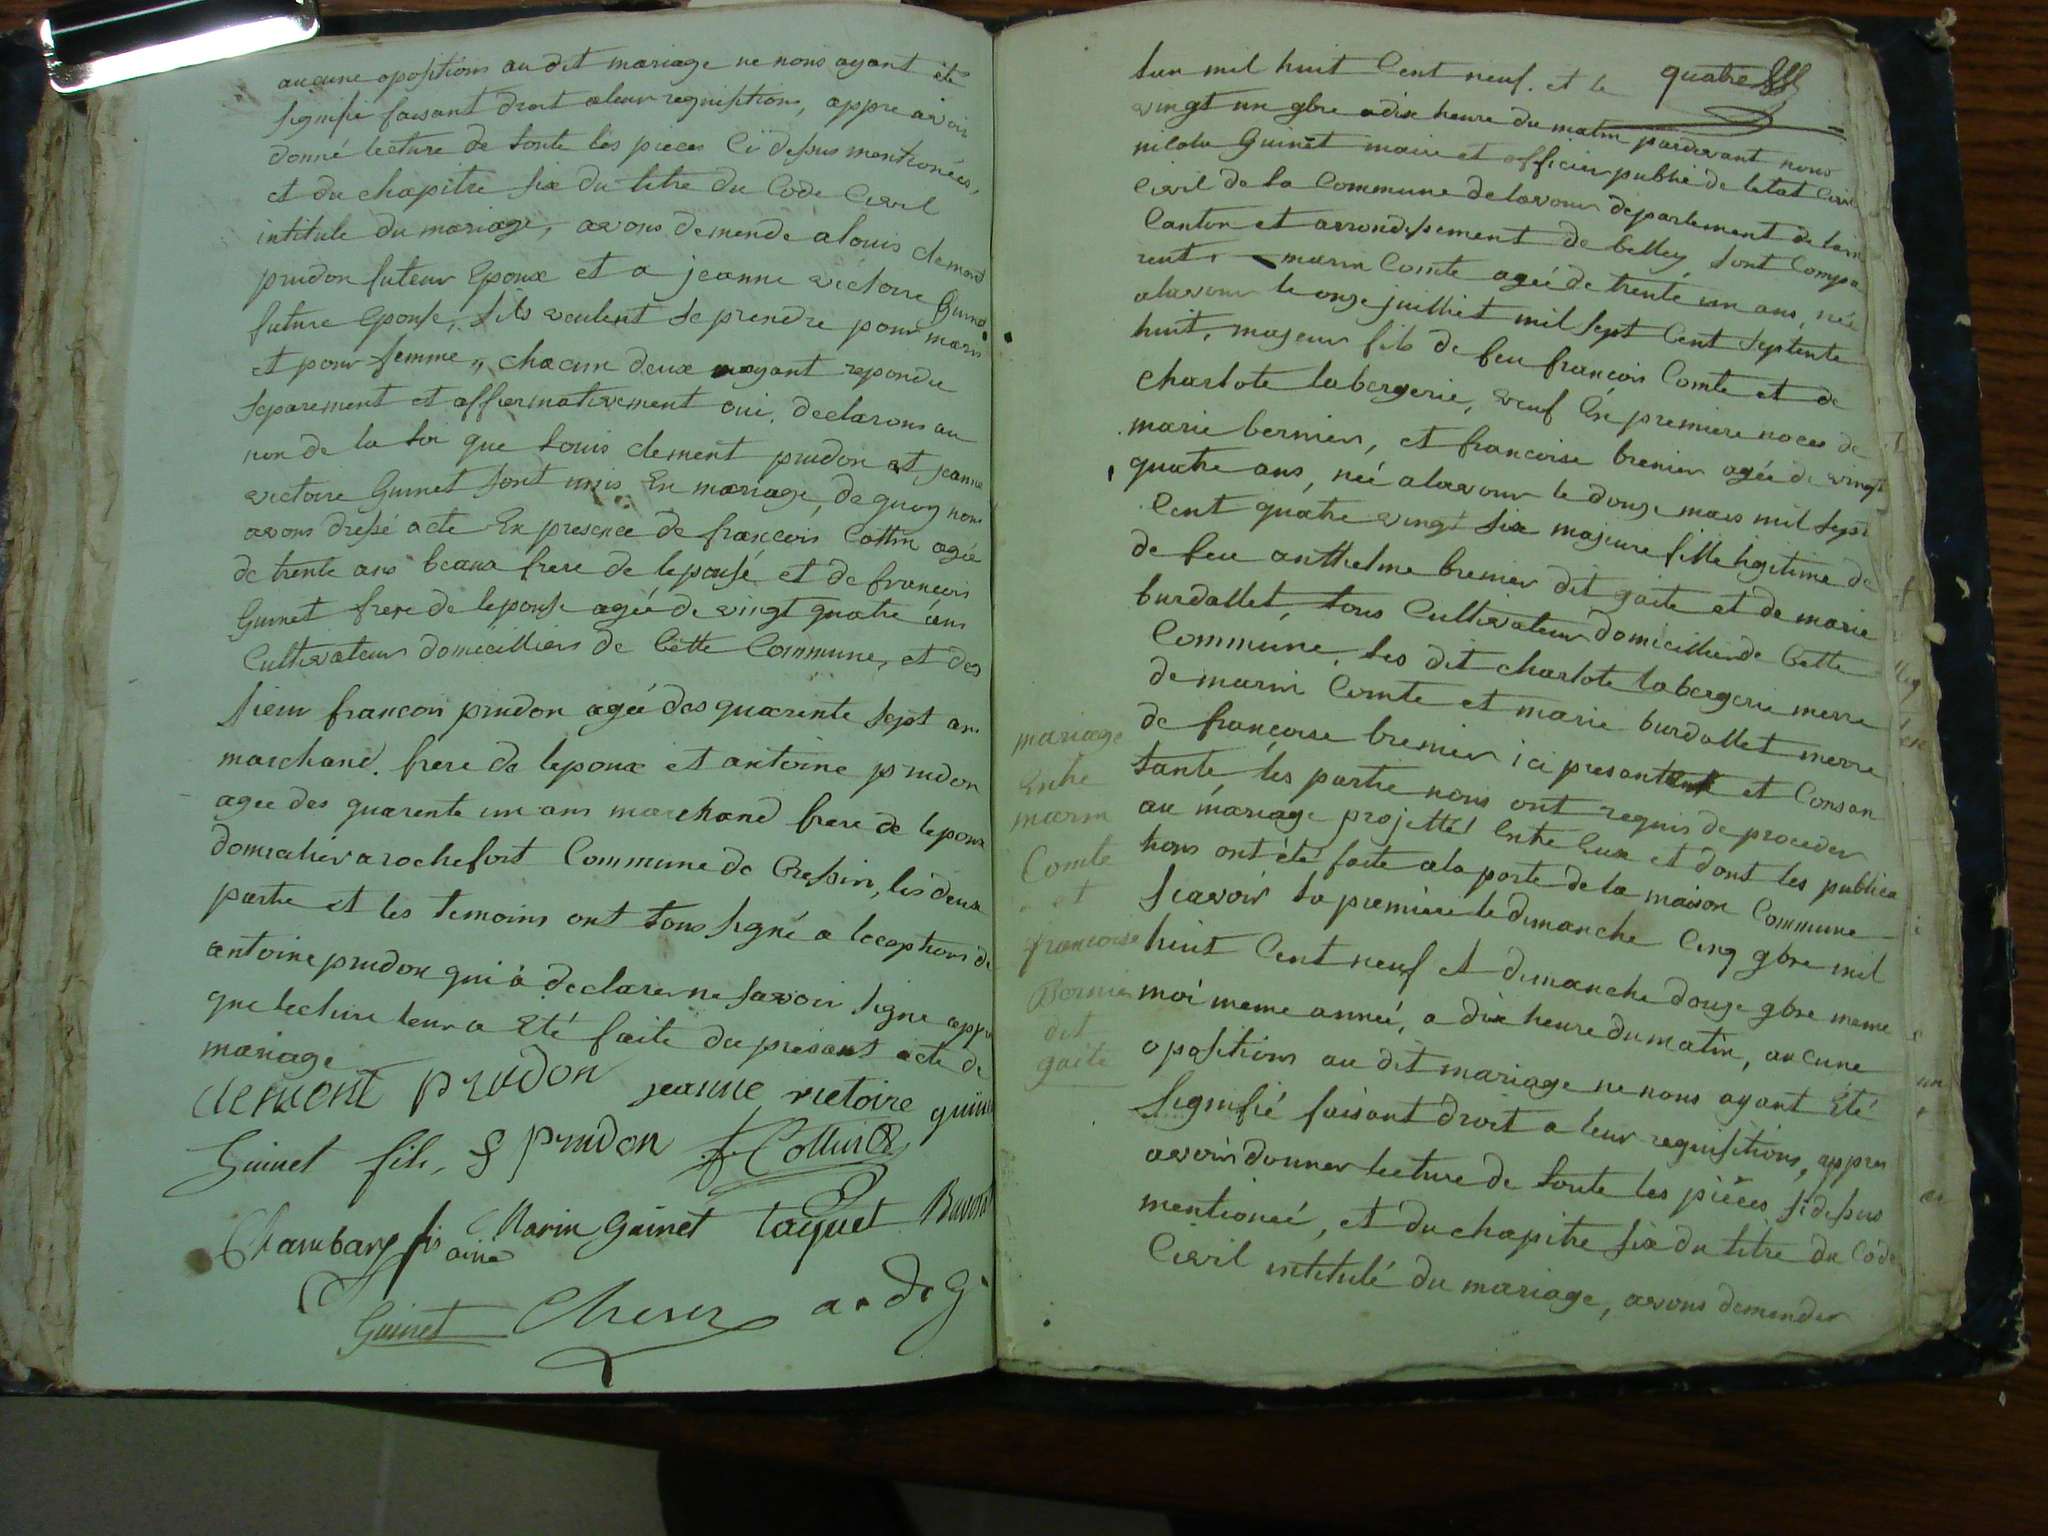 aucune opositions au dit mariage ne nous ayant été
signifié faisant droit a leur requisitions, appre avoir
donné lecture de toute les pieces Ci dessus mentionées,
et du chapitre six du titre du Code Civil
intitule du mariage, avons demende a louis clement
prudon futeur Epoux et a jeanne victoire Guinet
future Epouse, sils veulent se prendre pour maris
et pour femme, chacun deux ayant repondu
separement et affirmativement oui, declarons au
nom de la loi que louis clement prudon et jeanne
victoire Guinet sont unis En mariage, de quoy nous
avons dressé acte En presence de francois Cottin agée
de trente ans beaux frere de lepousé et de francois
Guinet frere de lepouse agée de vingt quatre ans
Cultivateurs domicilliers de Cette Commune, et des
sieur francois prudon agée des quarente sept an
marchand. frere de lepoux et antoine prudon
agee des quarente un ans marchand frere de lepoux
domicilier a rochefort Commune de Cressin, les deux
partie et les temoins ont tous signé a lexception de
antoine prudon qui à declarer ne savoir signe appre
que lecture leur a Eté faite du présant acte de
mariage
clement prudon jeanne victoire guinet
Guinet fils, prudon f. Collin
Chambary fils ainé Marin Guinet taquet
Guinet a. d. g.
lan mil huit Cent neuf. et le quatre
vingt un gbre a dix heure du matin pardevant nous
nicolas Guinet maire et officier public de letat Civil
Civil de la Commune de lavour departement de lain
Canton et arrondissement de belley sont Compa
rut. marin Comte agée de trente un ans, née
a lavour le onze juilliet mil sept Cent septente
huit, majeur fils de feu françois Comte et de
charlote labergerie, veuf En premiere noces de
marie bernier, et francoise brenier agée de vingt
quatre ans, neé a lavour le douze mars mil sept
Cent quatre vingt six majeure fille ligitime de
de feu anthelme brenier dit gaite et de marie
burdallet, tous Cultivateur domicillier de Cette
Commune, les dit charlote labergerie merre
de marin Comte et marie burdallet merre
de françoise brenier ici presant et Consan
tante les partie nous ont requis de proceder
au mariage projetté Entre Eux et dont les publica
tions ont été faite a la porte de la maison Commune
scavoir la premiere le dimanche Cinq gbre mil
huit Cent neuf et dimanche douze gbre meme
moi meme année, a dix heure du matin, aucune
opositions au dit mariage ne nous ayant Eté
signifié faisant droit a leur requisitions, appres
avoir donner lecture de toute les pièces sidessus
mentioneé, et du chapitre six du titre du Code
Civil intitulé du mariage, avons demender
mariage
Entre
marin
Comte
et
francoise
Bernier
dit
gaite